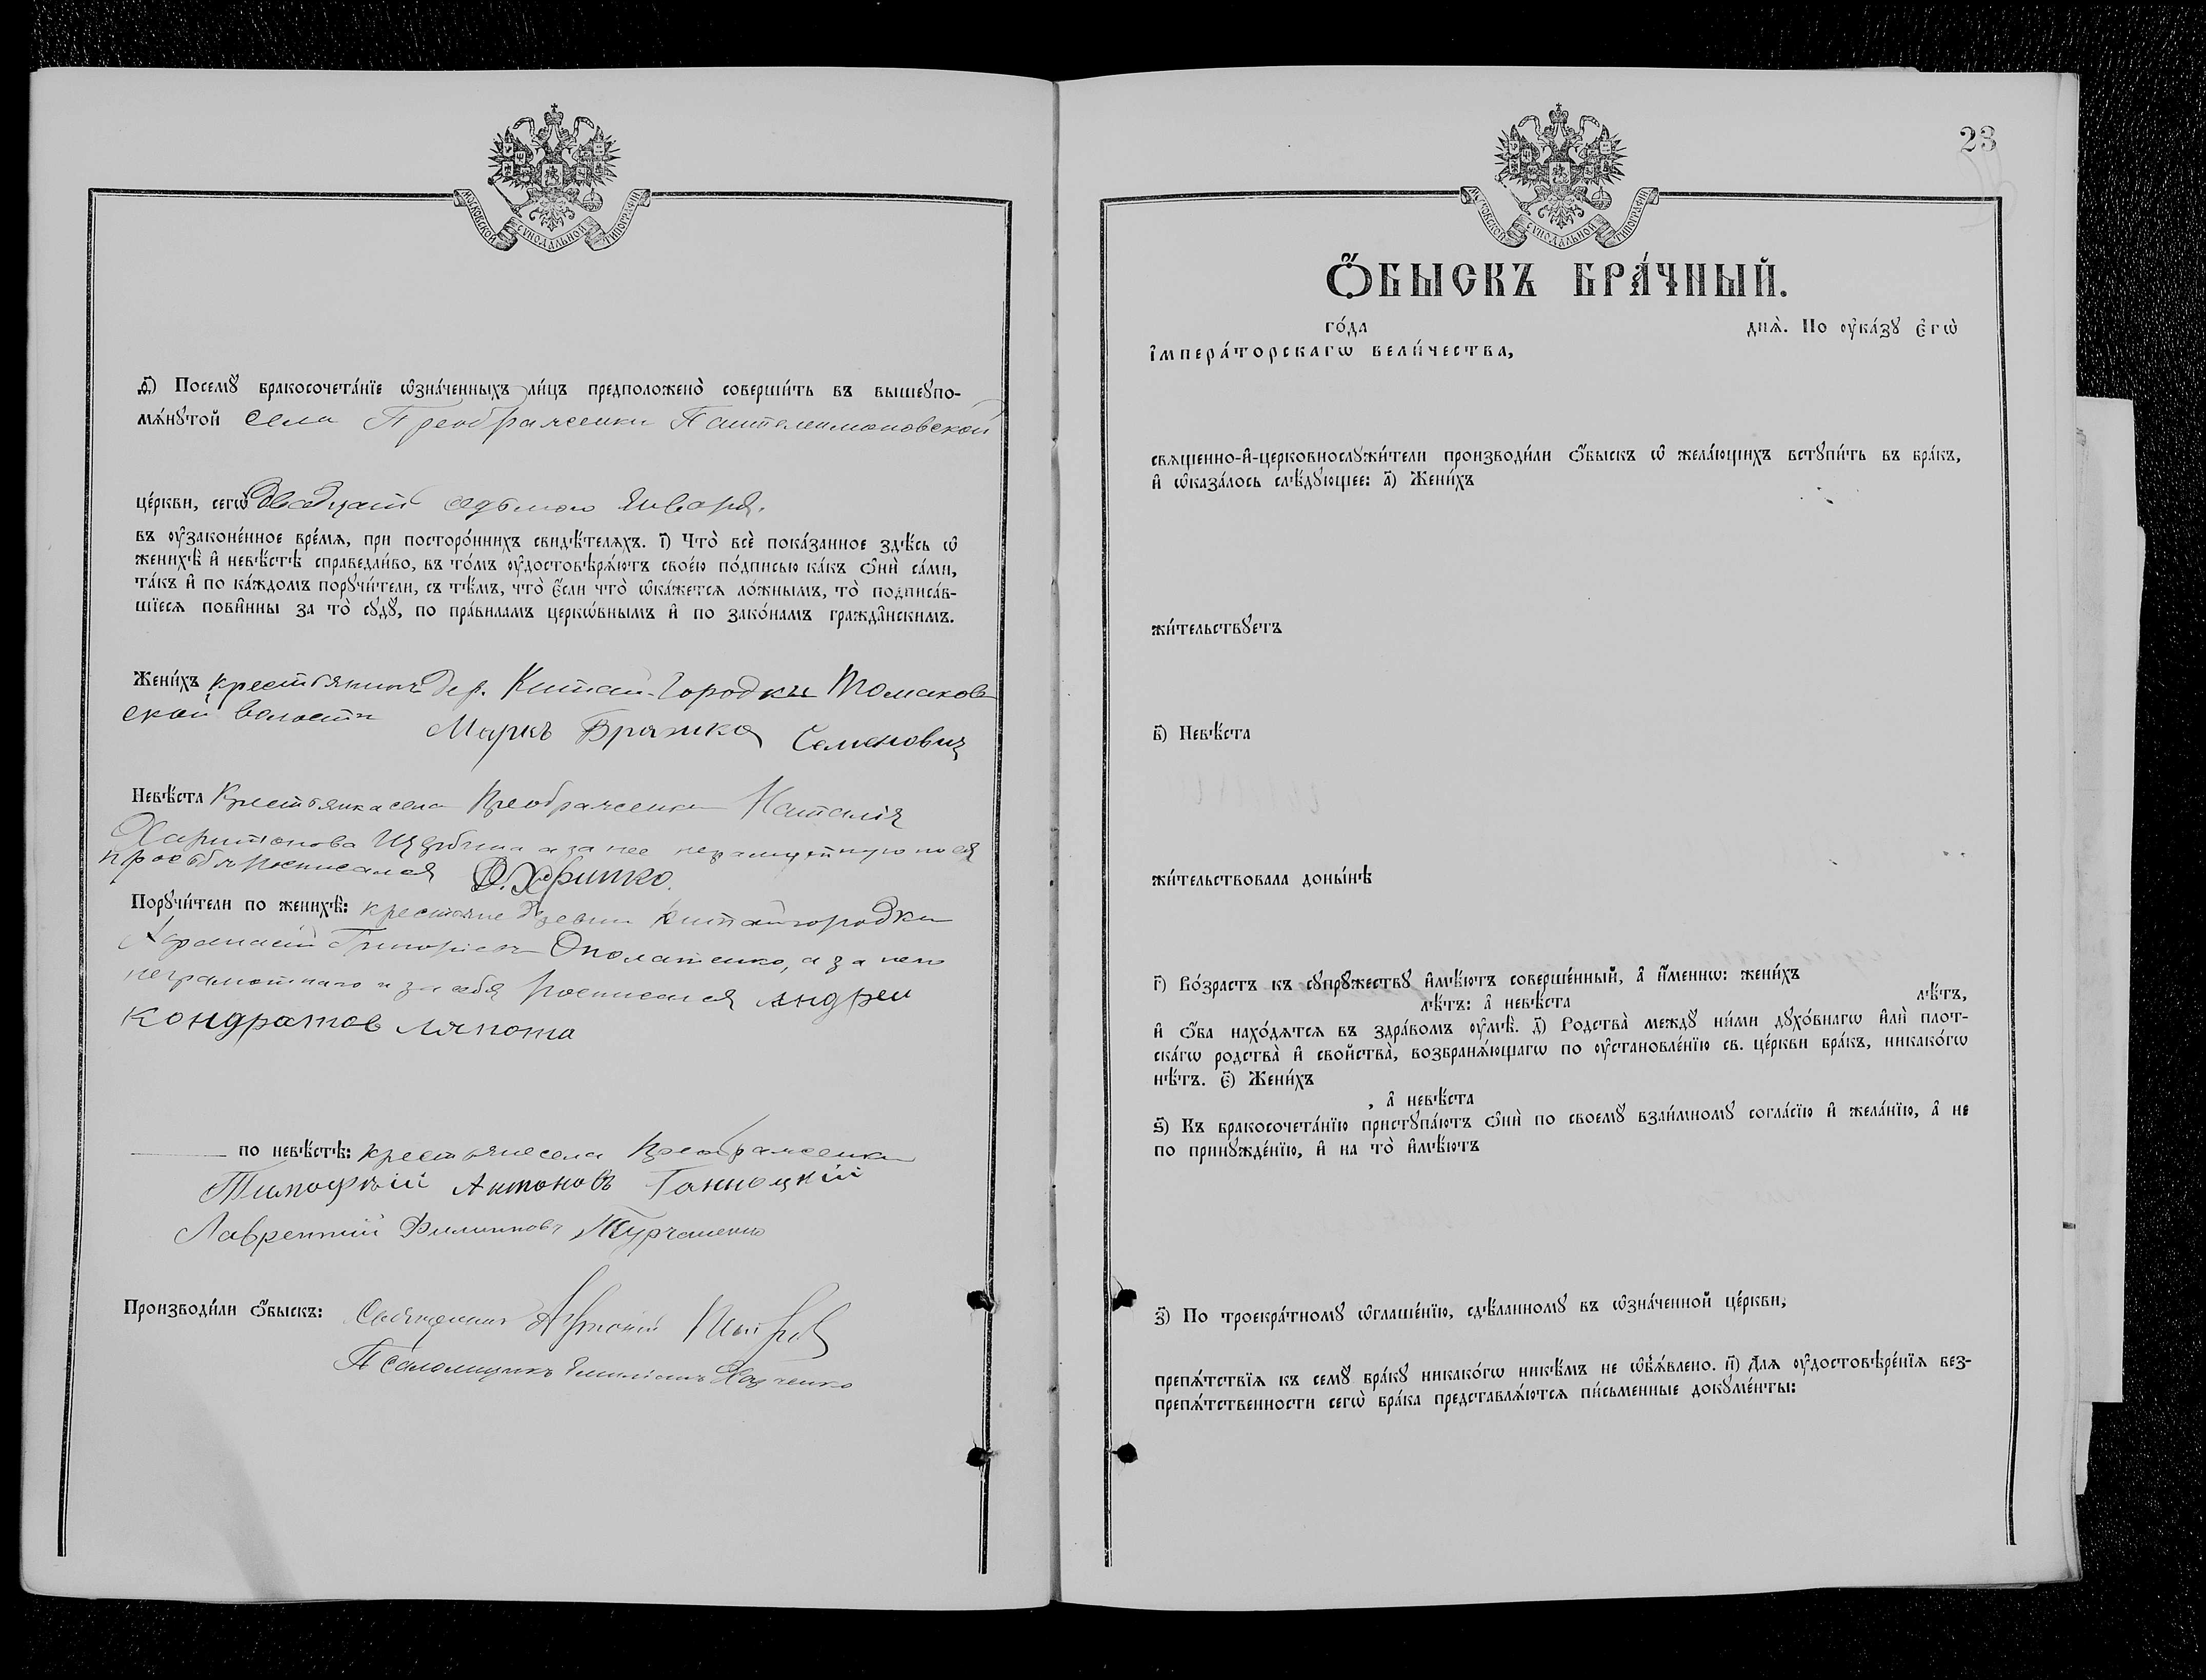 МОСКОВСКОЙ СѴНОДАЛЬНОЙ ТИПОГРАФІИ
д҃) Посемꙋ̀ бракосочета́нїе ѡ҆зна́ченныхъ ли́цъ предположено̀ соверши́ть въ вышеꙋпо-
мѧ́нꙋтой села Преображенки Пантелеимоновской
це́ркви, сегѡ̀ Двадцать седьмого Января.
въ ᲂу҆законе́нное вре́мѧ, при посторо́ннихъ свидѣ́телѧхъ. і҃) Что̀ всѐ пока́занное здѣ́сь ѡ҆
женихѣ̀ и҆ невѣ́стѣ справедли́во, въ то́мъ ᲂу҆достовѣрѧ́ютъ свое́ю по́дписью ка́къ ѻ҆нѝ са́ми,
та́къ и҆ по ка́ждомъ порꙋчи́тели, съ тѣ́мъ, что̀ є҆́сли что̀ ѡ҆ка́жетсѧ ло́жнымъ, то̀ подписа́в-
шїесѧ пови́нны за то̀ сꙋдꙋ̀, по пра́виламъ церкѡ́внымъ и҆ по зако́намъ гражда́нскимъ.
Жени́хъ крестьянинъ дер. Китай-Городки Томаков
ской волости Маркъ Бряжко Семенович
Невѣ́ста Крестьянка села Преображенки Наталія
Харитонова а за нее неграмотную по ея
просьбѣ росписался
Порꙋчи́тели по женихѣ̀: крестьяне Китайгородки
Афанасій Григоріевъ а за него
неграмотнаго и за себя росписался Андреи
Кондратов Ляпота
по невѣ́стѣ: крестьяне села Преображенки
Тимофѣй Антоновъ
Лаврентій Филиповъ Турчаненко
Производи́ли ѻ҆́быскъ: Священникъ
Псаломщикъ
23
МОСКОВСКОЙ СѴНОДАЛЬНОЙ ТИПОГРАФІИ
Ѻ҆́БЫСКЪ БРА́ЧНЫЙ.
го́да днѧ̀. По ᲂу҆ка́зꙋ є҆гѡ̀
і҆мпера́торскагѡ вели́чества,
свѧщенно-и҆-церковнослꙋжи́тели производи́ли ѻ҆́быскъ ѡ҆ жела́ющихъ встꙋпи́ть въ бра́къ,
и҆ ѡ҆каза́лось слѣ́дꙋющее: а҃) Жени́хъ
жи́тельствꙋетъ
в҃) Невѣ́ста
жи́тельствовала доны́нѣ
г҃) Во́зрастъ къ сꙋпрꙋ́жествꙋ и҆мѣ́ютъ соверше́нный, а҆ и҆́менно: жени́хъ
лѣ́тъ: а҆ невѣ́ста лѣ́тъ,
и҆ ѻ҆́ба нахо́дѧтсѧ въ здра́вомъ ᲂу҆мѣ̀. д҃) Родства̀ междꙋ̀ ни́ми дꙋхо́внагѡ и҆лѝ плот-
ска́гѡ родства̀ и҆ сво́йства̀, возбранѧ́ющагѡ по ᲂу҆становле́нїю св. це́ркви бра́къ, никако́гѡ
нѣ́тъ. є҃) Жени́хъ
, а҆ невѣ́ста
ѕ҃) Къ бракосочета́нїю пристꙋпа́ютъ ѻ҆нѝ по своемꙋ̀ взаи́мномꙋ согла́сїю и҆ жела́нїю, а҆ не
по принꙋжде́нїю, и҆ на то̀ и҆мѣ́ютъ
з҃) По троекра́тномꙋ ѡ҆глаше́нїю, сдѣ́ланномꙋ въ ѡ҆зна́ченной це́ркви,
препѧ́тствїѧ къ семꙋ̀ бра́кꙋ никако́гѡ никѣ́мъ не ѡ҆б̾ѧ́влено. и҃) Длѧ ᲂу҆достовѣре́нїѧ без-
препѧ́тственности сегѡ̀ бра́ка представлѧ́ютсѧ пи́сьменные докꙋме́нты: